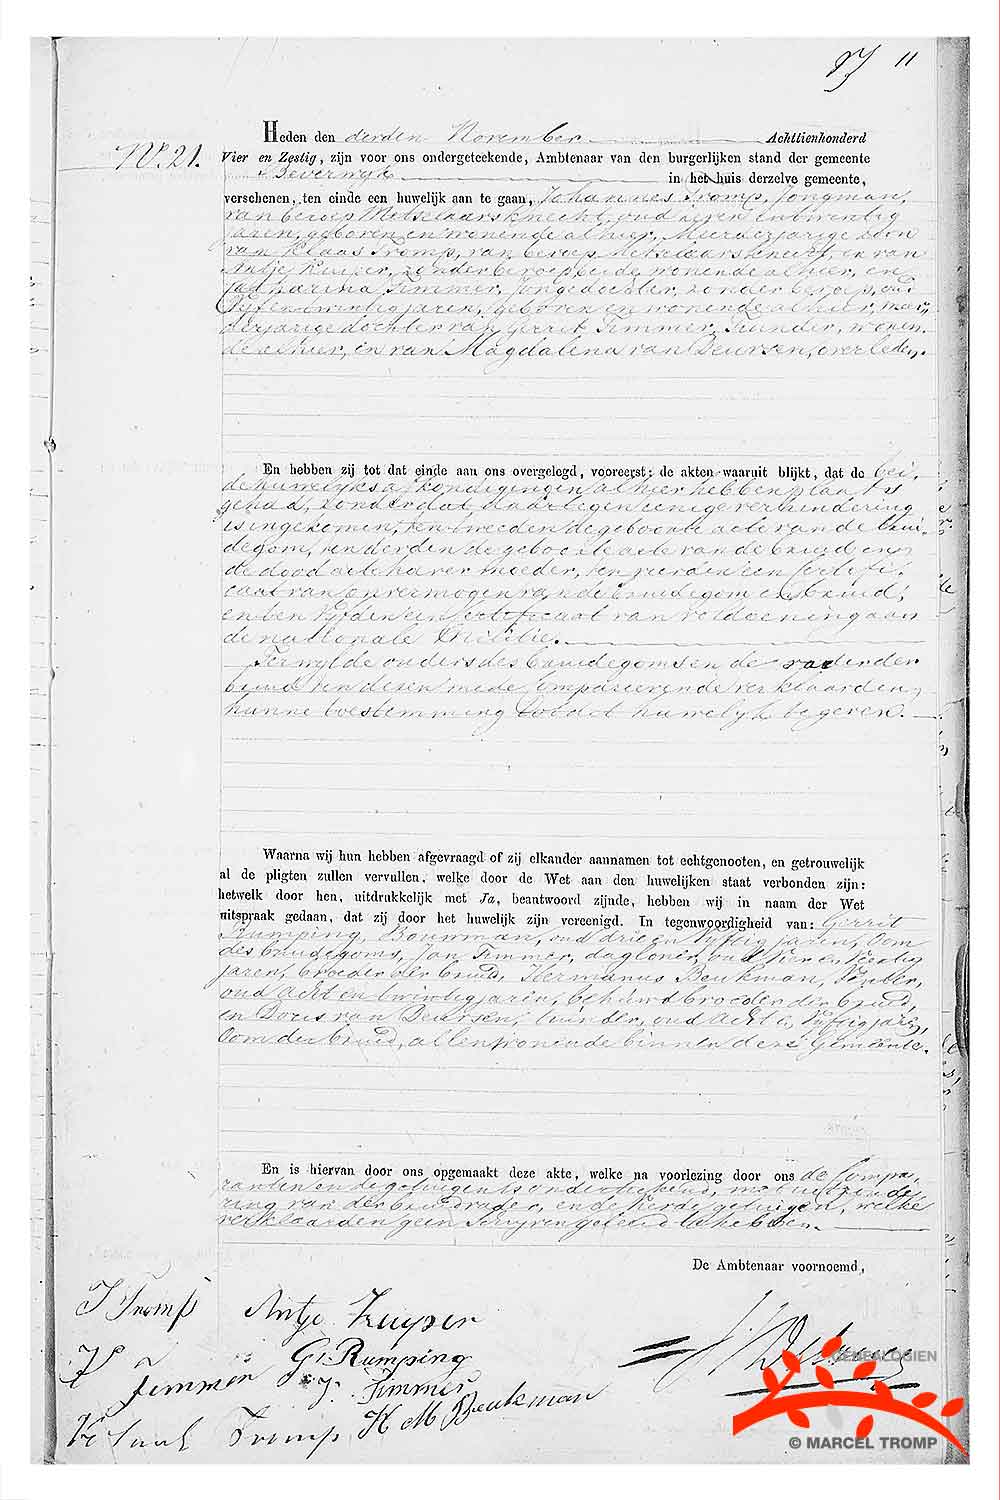 11
N°. 21.
Heden den derden November Achttienhonderd
Vier en Zestig, zijn voor ons ondergeteekende, Ambtenaar van den burgerlijken stand der gemeente
Beverwijk in het huis derzelve gemeente,
verschenen, ten einde een huwelijk aan te gaan, Johannes Tromp, Jongman,
van beroep Metselaarsknecht, oud zeven en twintig
jaren, geboren en wonende alhier, Meerderjarige zoon
van Klaas Tromp, van beroep Metselaarsknecht, en van
Antje Kuiper, zonder beroep beide wonende alhier, en
Catharina Timmer, Jongedochter, zonder beroep, oud
Vijf en twintig jaren, geboren en wonende alhier, meer-
derjarige dochter van Gerrit Timmer, Tuinder, wonen-
de alhier, en van Magdalena van Deursen, overleden.
En hebben zij tot dat einde aan ons overgelegd, vooreerst: de akten waaruit blijkt, dat de bei-
de huwelijks afkondigingen alhier hebben plaats
gehad, zonder dat daartegen eenige verhindering
is ingekomen, ten tweeden de geboorte acte van de brui-
degom, ten derden de geboorte acte van de bruid en
de dood acte harer moeder, ten vierden een Certifi-
caat van onvermogen van de bruidegom en bruid,
en ten Vijfden een certificaat van voldoening aan
de nationale Militie.
Terwijl de ouders des bruidegoms en de vader der
bruid ten dezen mede Compareerende verklaarden,
hunne toestemming tot dit huwelijk te geven.
Waarna wij hun hebben afgevraagd of zij elkander aannamen tot echtgenooten, en getrouwelijk
al de pligten zullen vervullen, welke door de Wet aan den huwelijken staat verbonden zijn:
hetwelk door hen, uitdrukkelijk met Ja, beantwoord zijnde, hebben wij in naam der Wet
uitspraak gedaan, dat zij door het huwelijk zijn vereenigd. In tegenwoordigheid van: Gerrit
Rumping, Bouwman, oud drie en Vijftig jaren, Oom
des bruidegoms, Jan Timmer, dagloner, oud Vier en Veertig
jaren, broeder der bruid, Hermanus Beukman, Tuinder,
oud Acht en twintig jaren, behuwd broeder der bruid,
en Doris van Deursen, tuinder, oud Acht en Vijftig jaren,
Oom der bruid, allen wonende binnen deze Gemeente.
En is hiervan door ons opgemaakt deze akte, welke na voorlezing door ons de Compa-
ranten en de getuigen is onderteekend, met uitzonde-
ring van der bruid vader, en de vierde getuigen, welke
verklaarden geen Schrijven geleerd te hebben.
De Ambtenaar voornoemd,
J Tromp Antje Kuyper
Gt. Rumping
Timmer J. Timmer
H M Beukman
Klaas Tromp
GENEALOGIEN
© MARCEL TROMP